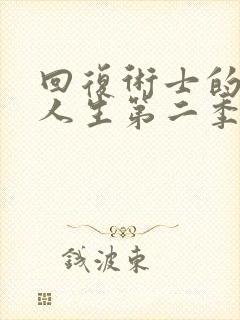 回復術士的
人生第二季
钱波東